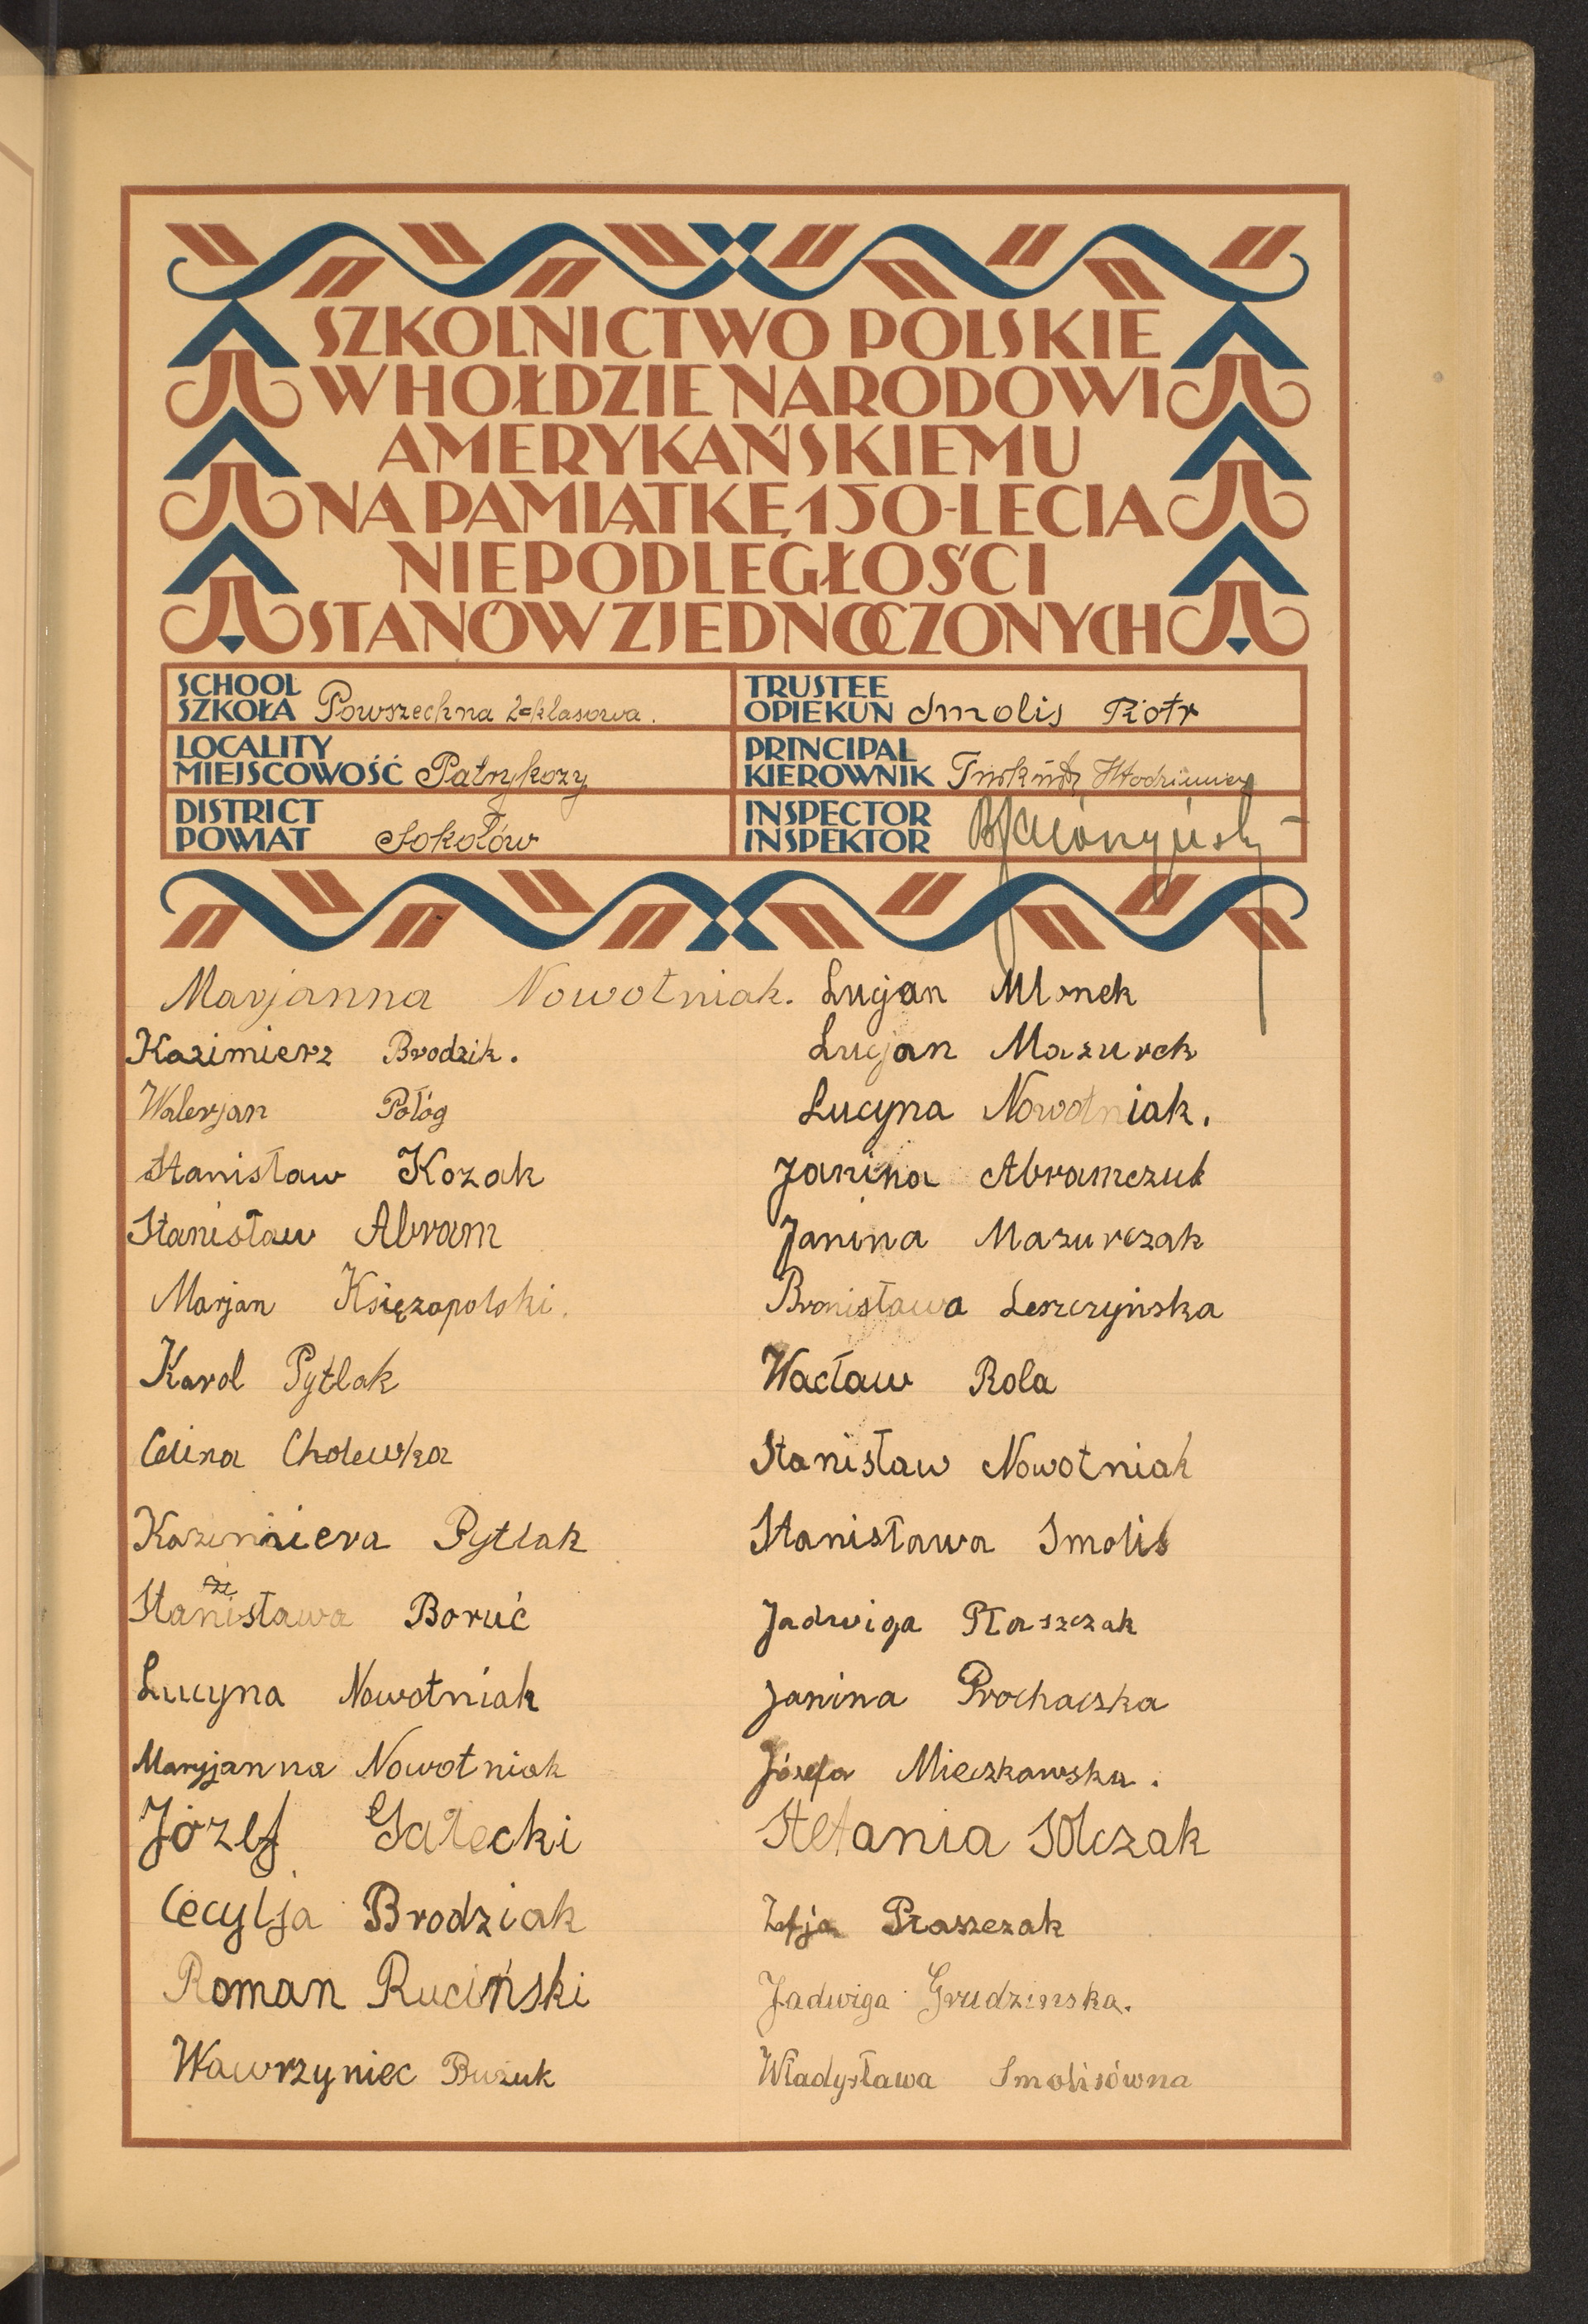 SZKOLNICTWO POLSKIE
W HOŁDZIE NARODOWI
AMERYKAŃSKIEMU
NA PAMIĄTKĘ 150-LECIA
NIEPODLEGŁOŚCI
STANÓW ZJEDNOCZONYCH
SCHOOL
SZKOŁA Powszechna 2=klasowa.
TRUSTEE
OPIEKUN Smolis Piotr
LOCALITY
MIEJSCOWOŚĆ Patrykozy
PRINCIPAL
KIEROWNIK
DISTRICT
POWIAT Sokołów
INSPECTOR
INSPEKTOR
Marjanna Nowotniak.
Kazimierz Brodzik.
Walerjan Połóg
Stanisław Kozak
Stanisław Abram
Marjan Księzopolski.
Karol Pytlak
Celina Cholewka
Kazimiera Pytlak
Stanisława Boruć
Lucyna Nowotniak
Maryjanna Nowotniak
Józef Gałecki
Cecylja Brodziak
Roman Ruciński
Wawrzyniec Buzuk
Lucjan Mlonek
Lucjan Mazurek
Lucyna Nowotniak.
Janina Abramczuk
Janina Mazurczak
Bronisława Leszczyńska
Wacław Rola
Stanisław Nowotniak
Stanisława Smolis
Jadwiga Płaszczak
Janina Prochacska
Józefa Mieczkawska.
Stefania Solczak
Zofja Płaszczak
Jadwiga Grudzinska.
Władysława Smolisówna